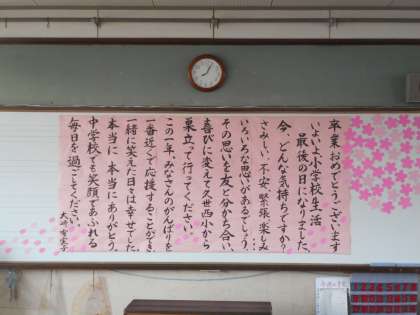 卒業おめでとうございます
いよいよ小学校生活
最後の日になりました。
今、どんな気持ちですか？
さみしい、不安、緊張、楽しみ…
いろいろな思いがあるでしょう。
その思いを友と分かち合い、
喜びに変えて久世西小から
巣立って行ってください。
この一年、みなさんのがんばりを
一番近くで応援することができ、
一緒に笑えた日々は幸せでした。
本当に本当にありがとう。
中学校でも笑顔であふれる
毎日を過ごしてください。